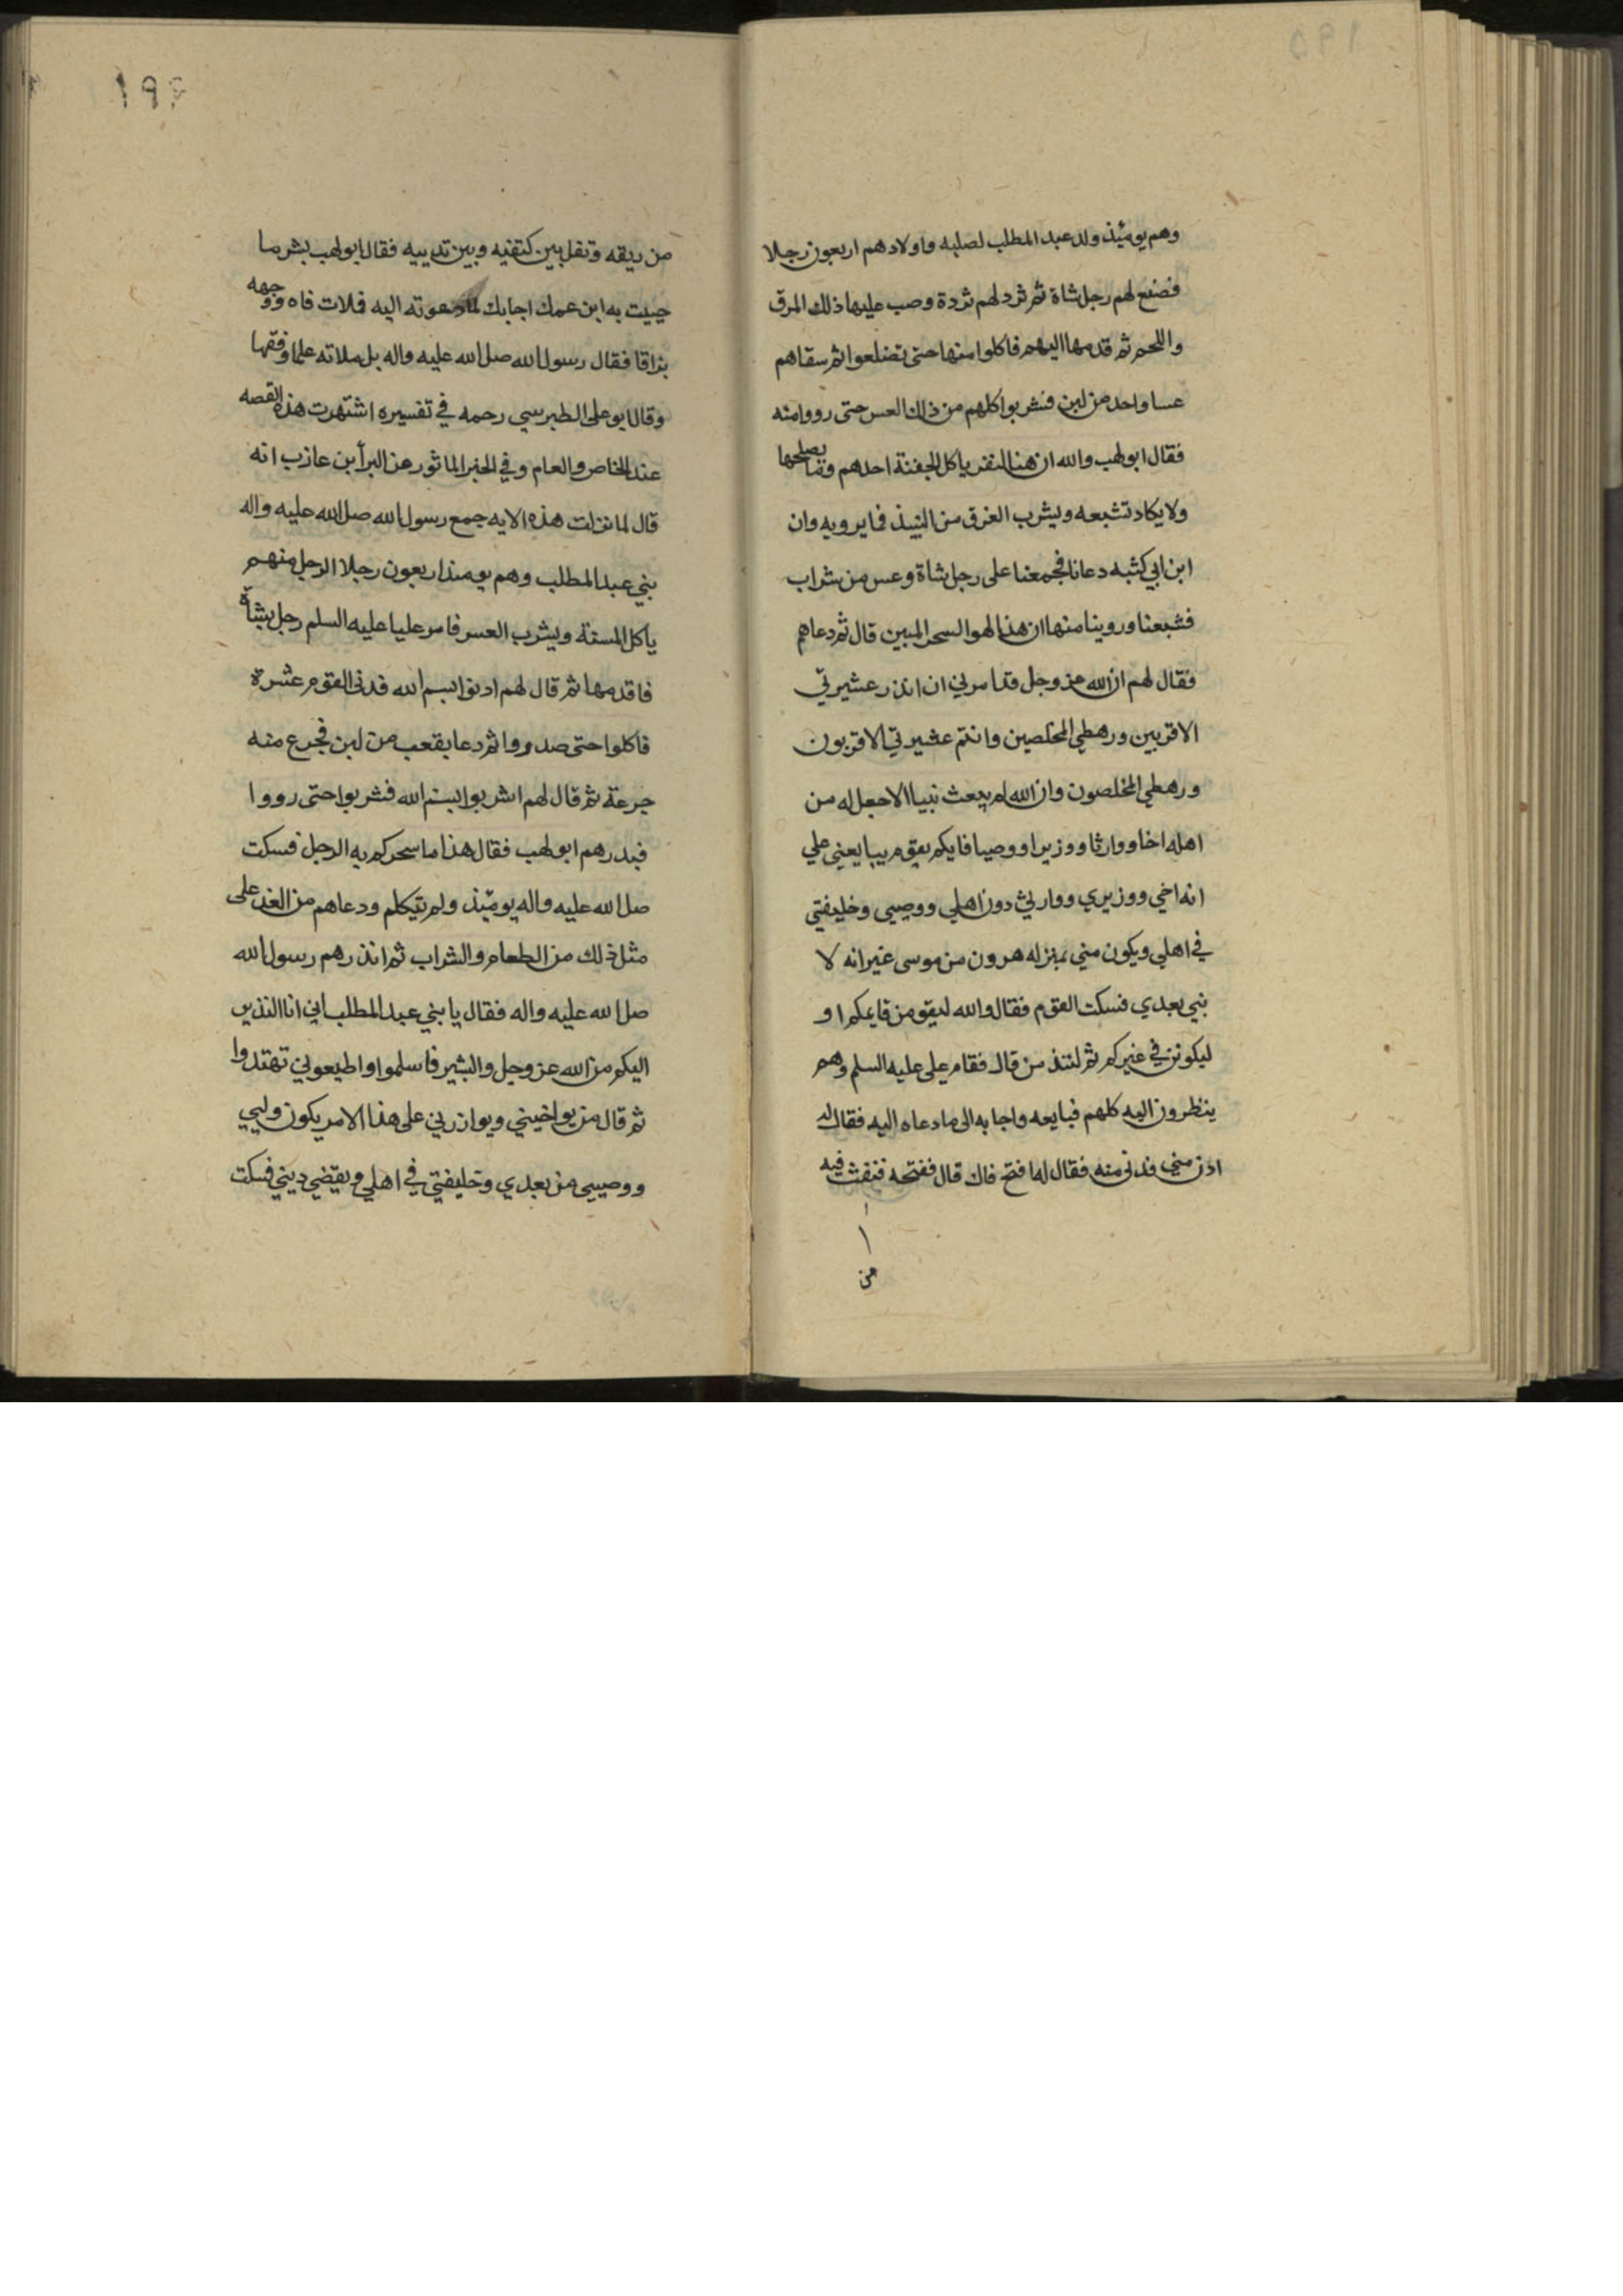 ١٩٥
وهم يومئذ ولد عبد المطلب لصلبه واولادهم اربعون رجلا
فصنع لهم رجل شاة ثم ثرد لهم ثردة وصب عليها ذلك المرق
واللحم ثم قدمها اليهم فاكلوا منها حتى تضلعوا ثم سقاهم
عسا واحد من لبن فشربوا كلهم من ذلك العس حتى رووا منه
فقال ابو لهب والله ان هنا لنفر ياكل الجفنة احدهم وما يصلحها
ولا يكاد تشبعه ويشرب الفرق من النبيذ فما يرويه وان
ابن ابي كبشه دعانا فجمعنا على رجل شاة وعس من شراب
فشبعنا وروينا منها ان هذا لهو السحر المبين قال ثم دعاهم
فقال لهم ان الله عز وجل قد امرني ان انذر عشيرتي
الاقربين ورهطي المخلصين وانتم عشيرتي الاقربون
ورهطي المخلصون وان الله لم يبعث نبيا الا جعل له من
اهله اخا ووارثا ووزيرا ووصيا فايكم يقوم يبايعني علي
انه اخي ووزيري ووارثي دون اهلي ووصيي وخليفتي
في اهلي ويكون مني بمنزله هرون من موسى غير انه لا
نبي بعدي فسكت القوم فقال والله ليقومن قايمكم او
ليكونن في غيركم ثم لتند من قال فقام علي عليه السلم وهم
ينظرون اليه كلهم فبايعه واجابه الى ما دعاه اليه فقال له
ادن مني فدنى منه فقال له افتح فاك قال ففتحه فنفث فيه
من
١٩٦
من ريقه وتفل بين كتفيه وبين ثدييه فقال ابو لهب بشر ما
جيت به ابن عمك اجابك لما دعوته اليه فملات فاه ووجهه
بزاقا فقال رسول الله صل الله عليه واله بل ملاته علما وفقها
وقال ابو على الطبرسي رحمه في تفسيره اشتهرت هذه القصه
عند الخاص والعام وفي الخبر الماثور عن البرأ بن عازب انه
قال لما نزلت هذه الايه جمع رسول الله صل الله عليه واله
بني عبد المطلب وهم يومئذ اربعون رجلا الرجل منهم
ياكل المسنة ويشرب العس فامر عليا عليه السلم رجل بشاة
فاقدمها ثم قال لهم ادنوا بسم الله فدنى القوم عشرة
فاكلوا حتى صدروا ثم دعا بقعب من لبن فجرع منه
جرعة ثم قال لهم اشربوا بسم الله فشربوا حتى رووا
فبدرهم ابو لهب فقال هذا ما سحركم به الرجل فسكت
صل الله عليه واله يومئذ ولم يتكلم ودعاهم من الغد على
مثل ذلك من الطعام والشراب ثم انذرهم رسول الله
صل الله عليه واله فقال يا بني عبد المطلب اني انا النذير
اليكم من الله عز وجل والبشير فاسلموا واطيعوني تهتدوا
ثم قال من يواخيني ويوازرني على هذا الامر يكون وليي
ووصيي من بعدي وخليفتي في اهلي ويقضي ديني فسكت